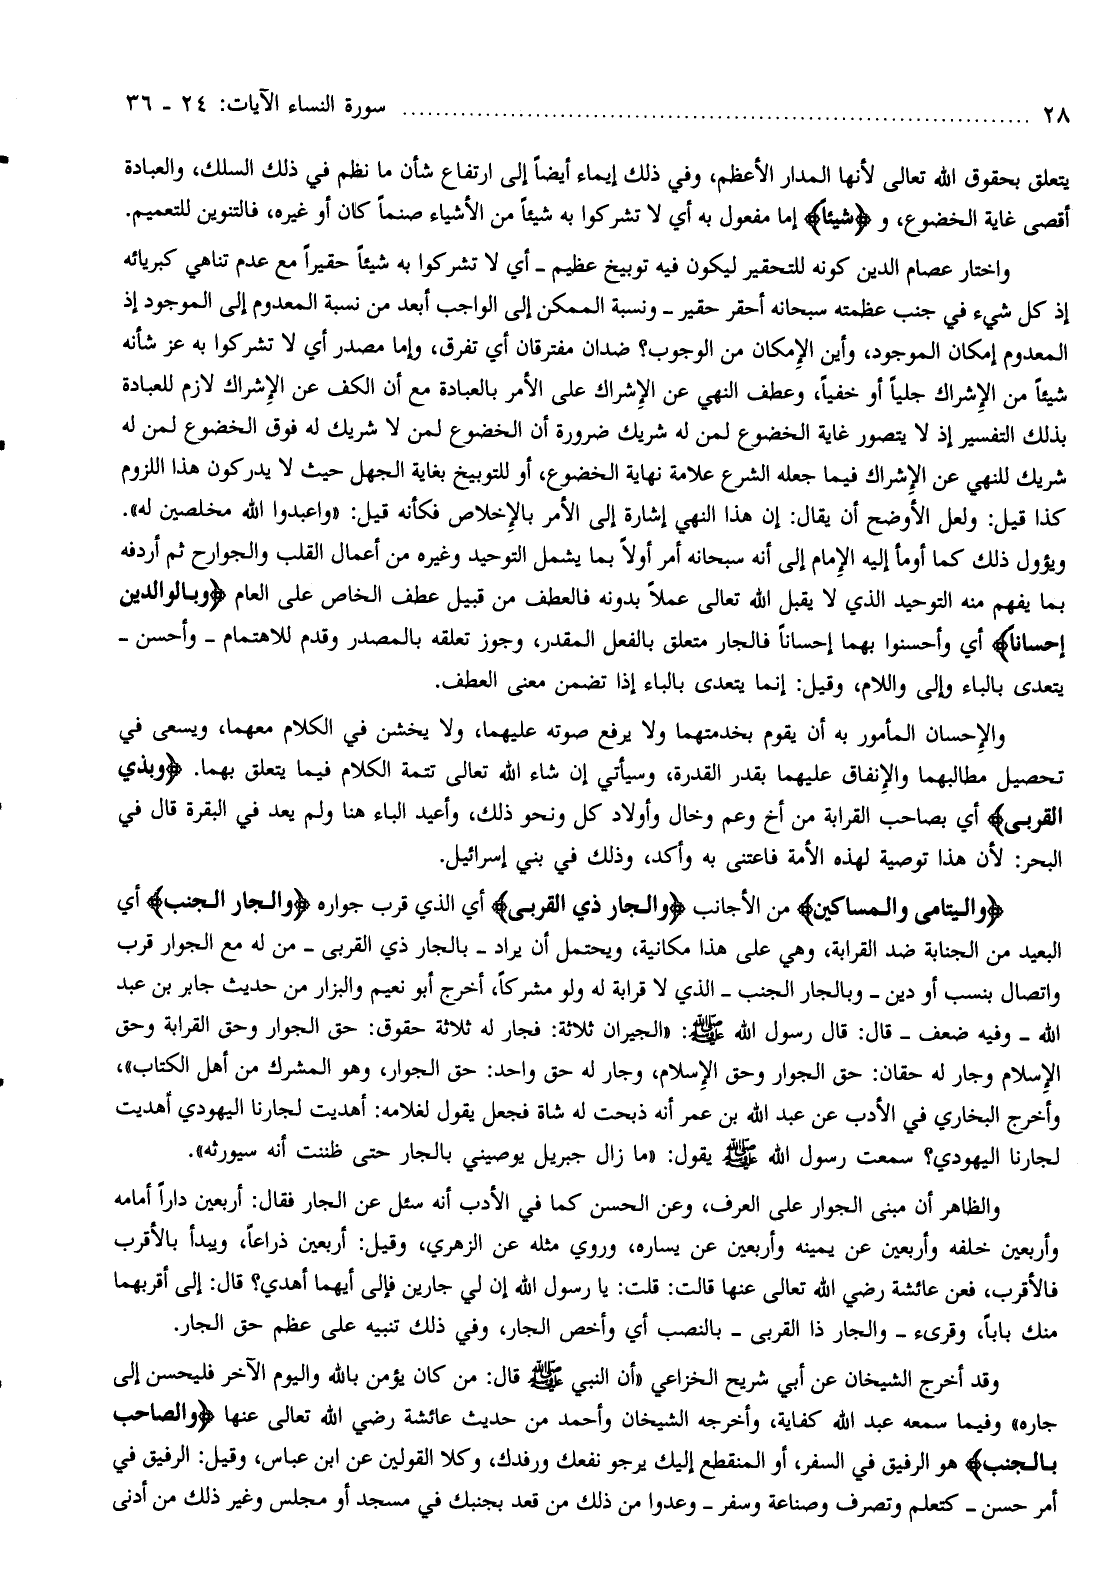 ٢٨ ........................................................ سورة النساء الآيات: ٢٤ - ٣٦
يتعلق بحقوق الله تعالى لأنها المدار الأعظم، وفي ذلك إيماء أيضاً إلى ارتفاع شأن ما نظم في ذلك السلك، والعبادة
أقصى غاية الخضوع، و ﴿شيئاً﴾ إما مفعول به أي لا تشركوا به شيئاً من الأشياء صنماً كان أو غيره، فالتنوين للتعميم.
واختار عصام الدين كونه للتحقير ليكون فيه توبيخ عظيم ـ أي لا تشركوا به شيئاً حقيراً مع عدم تناهي كبريائه
إذ كل شيء في جنب عظمته سبحانه أحقر حقير ـ ونسبة الممكن إلى الواجب أبعد من نسبة المعدوم إلى الموجود إذ
المعدوم إمكان الموجود، وأين الإمكان من الوجوب؟ ضدان مفترقان أي تفرق، وإما مصدر أي لا تشركوا به عز شأنه
شيئاً من الإشراك جلياً أو خفياً، وعطف النهي عن الإشراك على الأمر بالعبادة مع أن الكف عن الإشراك لازم للعبادة
بذلك التفسير إذ لا يتصور غاية الخضوع لمن له شريك ضرورة أن الخضوع لمن لا شريك له فوق الخضوع لمن له
شريك للنهي عن الإشراك فيما جعله الشرع علامة نهاية الخضوع، أو للتوبيخ بغاية الجهل حيث لا يدركون هذا اللزوم
كذا قيل: ولعل الأوضح أن يقال: إن هذا النهي إشارة إلى الأمر بالإخلاص فكأنه قيل: «واعبدوا الله مخلصين له».
ويؤول ذلك كما أومأ إليه الإمام إلى أنه سبحانه أمر أولاً بما يشمل التوحيد وغيره من أعمال القلب والجوارح ثم أردفه
بما يفهم منه التوحيد الذي لا يقبل الله تعالى عملاً بدونه فالعطف من قبيل عطف الخاص على العام ﴿وبالوالدين
إحساناً﴾ أي وأحسنوا بهما إحساناً فالجار متعلق بالفعل المقدر، وجوز تعلقه بالمصدر وقدم للاهتمام ـ وأحسن ـ
يتعدى بالباء وإلى واللام، وقيل: إنما يتعدى بالباء إذا تضمن معنى العطف.
والإحسان المأمور به أن يقوم بخدمتهما ولا يرفع صوته عليهما، ولا يخشن في الكلام معهما، ويسعى في
تحصيل مطالبهما والإنفاق عليهما بقدر القدرة، وسيأتي إن شاء الله تعالى تتمة الكلام فيما يتعلق بهما. ﴿وبذي
القربى﴾ أي بصاحب القرابة من أخ وعم وخال وأولاد كل ونحو ذلك، وأعيد الباء هنا ولم يعد في البقرة قال في
البحر: لأن هذا توصية لهذه الأمة فاعتنى به وأكد، وذلك في بني إسرائيل.
﴿واليتامى والمساكين﴾ من الأجانب ﴿والجار ذي القربى﴾ أي الذي قرب جواره ﴿والجار الجنب﴾ أي
البعيد من الجنابة ضد القرابة، وهي على هذا مكانية، ويحتمل أن يراد ـ بالجار ذي القربى ـ من له مع الجوار قرب
واتصال بنسب أو دين ـ وبالجار الجنب ـ الذي لا قرابة له ولو مشركاً، أخرج أبو نعيم والبزار من حديث جابر بن عبد
الله ـ وفيه ضعف ـ قال: قال رسول الله ﷺ: «الجيران ثلاثة: فجار له ثلاثة حقوق: حق الجوار وحق القرابة وحق
الإسلام وجار له حقان: حق الجوار وحق الإسلام، وجار له حق واحد: حق الجوار، وهو المشرك من أهل الكتاب»،
وأخرج البخاري في الأدب عن عبد الله بن عمر أنه ذبحت له شاة فجعل يقول لغلامه: أهديت لجارنا اليهودي أهديت
لجارنا اليهودي؟ سمعت رسول الله ﷺ يقول: «ما زال جبريل يوصيني بالجار حتى ظننت أنه سيورثه».
والظاهر أن مبنى الجوار على العرف، وعن الحسن كما في الأدب أنه سئل عن الجار فقال: أربعين داراً أمامه
وأربعين خلفه وأربعين عن يمينه وأربعين عن يساره، وروي مثله عن الزهري، وقيل: أربعين ذراعاً، ويبدأ بالأقرب
فالأقرب، فعن عائشة رضي الله تعالى عنها قالت: قلت: يا رسول الله إن لي جارين فإلى أيهما أهدي؟ قال: إلى أقربهما
منك باباً، وقرىء ـ والجار ذا القربى ـ بالنصب أي وأخص الجار، وفي ذلك تنبيه على عظم حق الجار.
وقد أخرج الشيخان عن أبي شريح الخزاعي «أن النبي ﷺ قال: من كان يؤمن بالله واليوم الآخر فليحسن إلى
جاره» وفيما سمعه عبد الله كفاية، وأخرجه الشيخان وأحمد من حديث عائشة رضي الله تعالى عنها ﴿والصاحب
بالجنب﴾ هو الرفيق في السفر، أو المنقطع إليك يرجو نفعك ورفدك، وكلا القولين عن ابن عباس، وقيل: الرفيق في
أمر حسن ـ كتعلم وتصرف وصناعة وسفر ـ وعدوا من ذلك من قعد بجنبك في مسجد أو مجلس وغير ذلك من أدنى